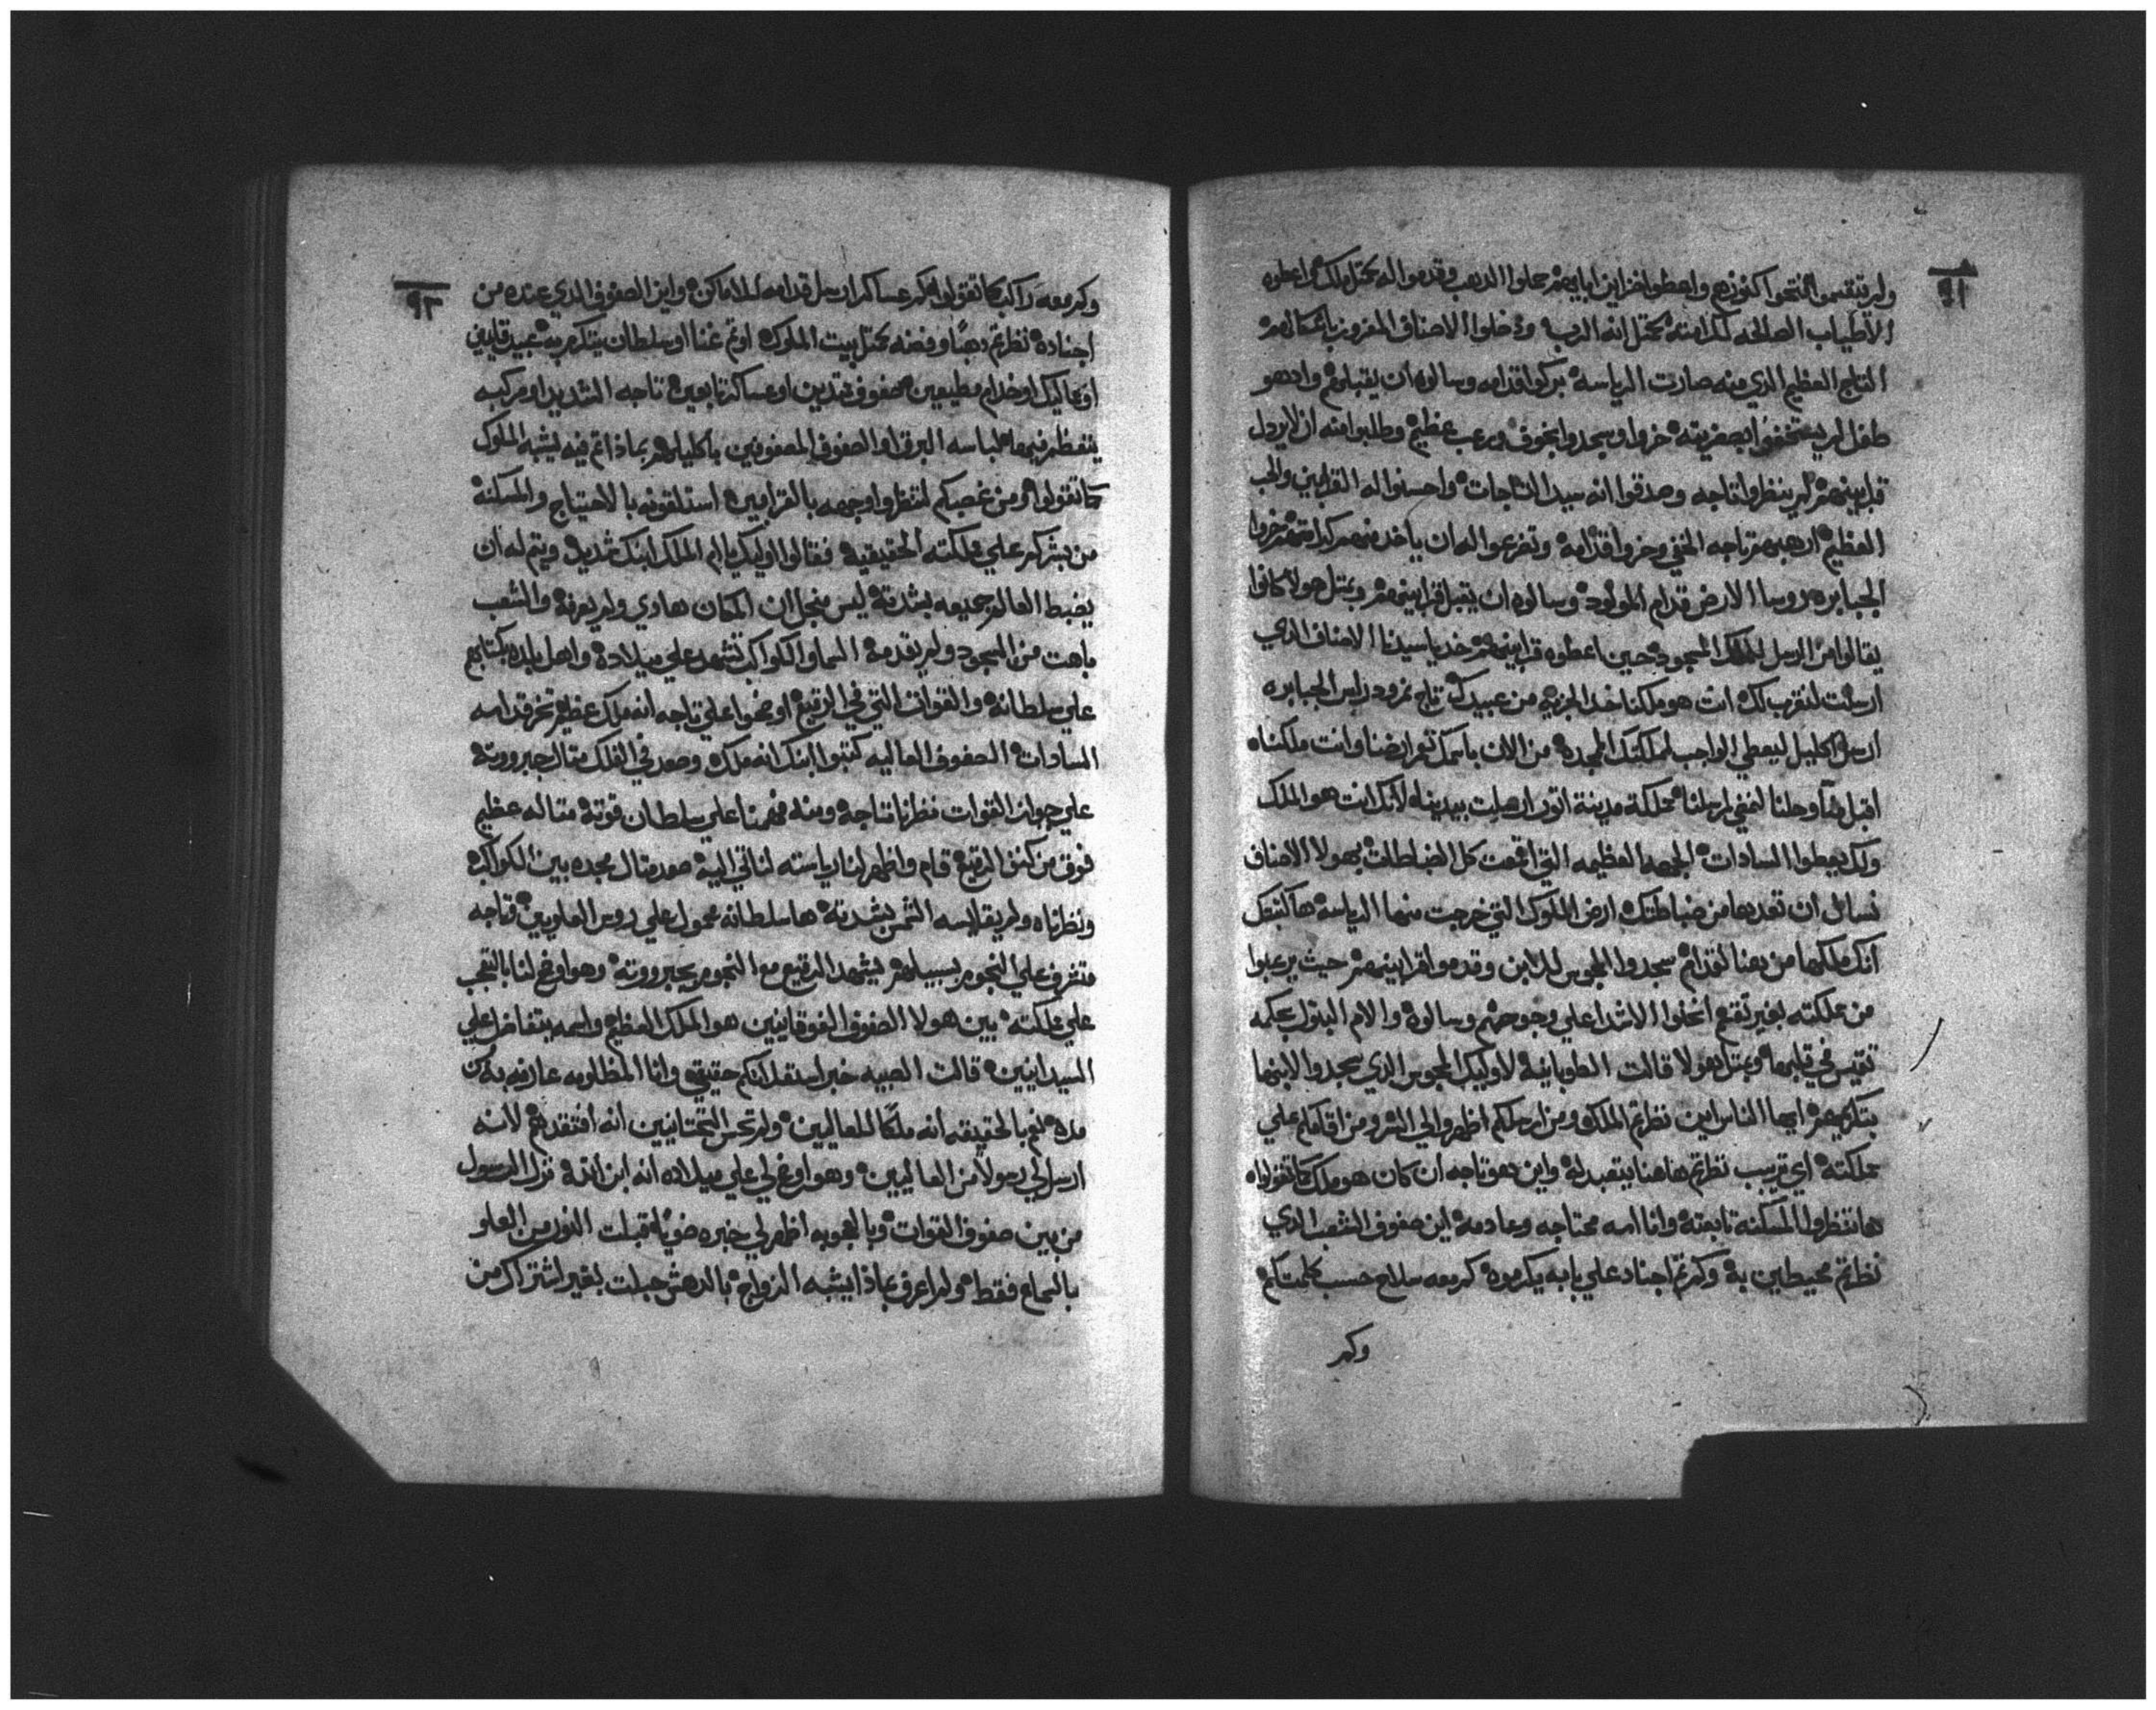 ٩١
ولم تقتسموا افتحوا كنوزهم واعطوا خزاين ابايهم حلوا الدهب وقدموا له بمحتل ملك واعطوه
الاطياب الصالحه لكرامته بمحتل انه الرب وادخلوا الاصناف المفروزين باشكالهم
التاج العظيم الذي منه صارت الرياسه بركوا قدامه وسالوه ان يقبلهم وادهو
طفل لم يستخفوا بصغريته خروا وسجدوا بخوف وبرعب عظيم وطلبوا منه ان لا يردل
قرابينهم لم ينظروا تاجه وصدقوا انه سيد التاجات واحسنوا له القرابين والحب
العظيم ارهبهم تاجه الخفي وخروا قدامه وتضرعوا له ان ياخد منهم كرامتهم خروا
الجبابره روسا الارض قدام المولود وسالوه ان يقبل قرابينهم وبمثل هولا كانوا
يقالوا من الرسل للملك المسجود حين اعطوه قرابينهم خد يا سيدنا الاصناف الذي
ارسلت لنقرب لك انت هو ملكنا خد الجزيه من عبيدك تاج نمرود راس الجبابره
ارسل اكليل ليعطي الواجب لمملكتك الممجده من الان باسمك تهدا ارضنا وانت ملكناه
اقبل منا وحلنا لنمضي لرحلنا مملكة مدينة اتور ارسلت بيدينا لانك انت هو الملك
ولك يعطوا السادات الجمعه العظيمه التي اقمعت كل الضلطات بهولا الاصناف
نسال ان تعدها من ضباطتك ارض الملوك التي خرجت منها الرياسه ها كتبتك
انك ملكها من هنا لقدام سجدوا المجوس للابن وقدموا قرابينهم حيث يرعبوا
من مملكته بغير تقنع انحنوا الاشدا علي وجوههم وسالوه والام البتول بحكمه
تقيس في قلبها وبمثل هولا قالت الطوبانيه لاوليك المجوس الذي سجدوا لابنها
بتكريم ايها الناس اين نظرتم الملك ومن ارسلكم اظهروا لي الشر ومن اقامكم علي
مملكته اي ترتيب نظرتم هاهنا يتعبد له واين هو تاجه ان كان هو ملك كما تقولواه
ها تنظروا المسكنه تابعته وانا امه محتاجه وعادمه اين صفوف الشعب الذي
نظرتم محيطين به وكم ثم اجناد علي بابه يكرموه كم معه سلاح حسب كلمتكم
وكم
٩٢
وكم معه راكب كما تقولوا كم عساكر ارسل قدامه للاماكن واين الصفوف الذي عنده من
اجناده نظرتم دهبًا وفضه بمحتل بيت الملوك او ثم غنا او سلطان يتكرم به عبيد قايمين
او مماليك او خدام مطيعين صفوف مقدين او عساكر تابوعين تاجه الشديد او مركبه
يتعظم فيها لباسه البرق او الصفوف المصفوفين باكليلهم بماذا ثم فيه يشبه الملوك
كما تقولوا ومن غصبكم لتنظروا وجهه بالقرابين استلقونه بالاحتياج والمسكنه
من بشركم علي مملكته الحقيقيه فقالوا اوليك يا ام الملك ابنك شديد ويتم له ان
يضبط العالم جميعه بشدته ليس من اجل ان المكان هادي ولم يعرفه والشعب
باهت من السجود ولم يقدمه السما والكواكب تشهد علي ميلاده واهل بابل بكتابهم
علي سلطانه والقوات التي في الرقيع اوضحوا علي تاجه انه ملك عظيم تخر قدامه
السادات الصفوف العاليه كتبوا ابنك انه ملك وصعد في الفلك مثال جبرووته
علي صوان القوات نظرنا تاجه ومنه فهمنا علي سلطان قوته مثاله عظيم
فوق من كنف الرقيع قام واظهر لنا رياسته لناتي اليه صعد مثال مجده بين الكواكب
ونظرناه ولم يقايسه الشمس بشدته ها سلطانه محمول علي روس العلويين وتاجه
متشرف علي النجوم بسبيلهم يشهد الرقيع مع النجوم بجبرووته وهو اوضح لنا بالتعجب
علي مملكته بين هولا الصفوف الفوقانيين هو الملك العظيم واسمه يتفاضل علي
السيدانيين قالت الصبيه خبر استقدامكم حقيقي وانا المظلومه عارفه به من
مده نعم بالحقيقه انه ملكًا للعاليين ولم تحس التحتانيين انه افتقدهم لانه
ارسل لي رسولًا من العاليين وهو اوضح لي علي ميلاده انه ابن الله نزل الرسول
من بين صفوف القوات وبالعجوبه اظهر لي خبره ضويًا قبلت النور من العلو
بالسماع فقط ولم اعرف بماذا يشبه الزواج بالدهش حبلت بغير اشتراك من